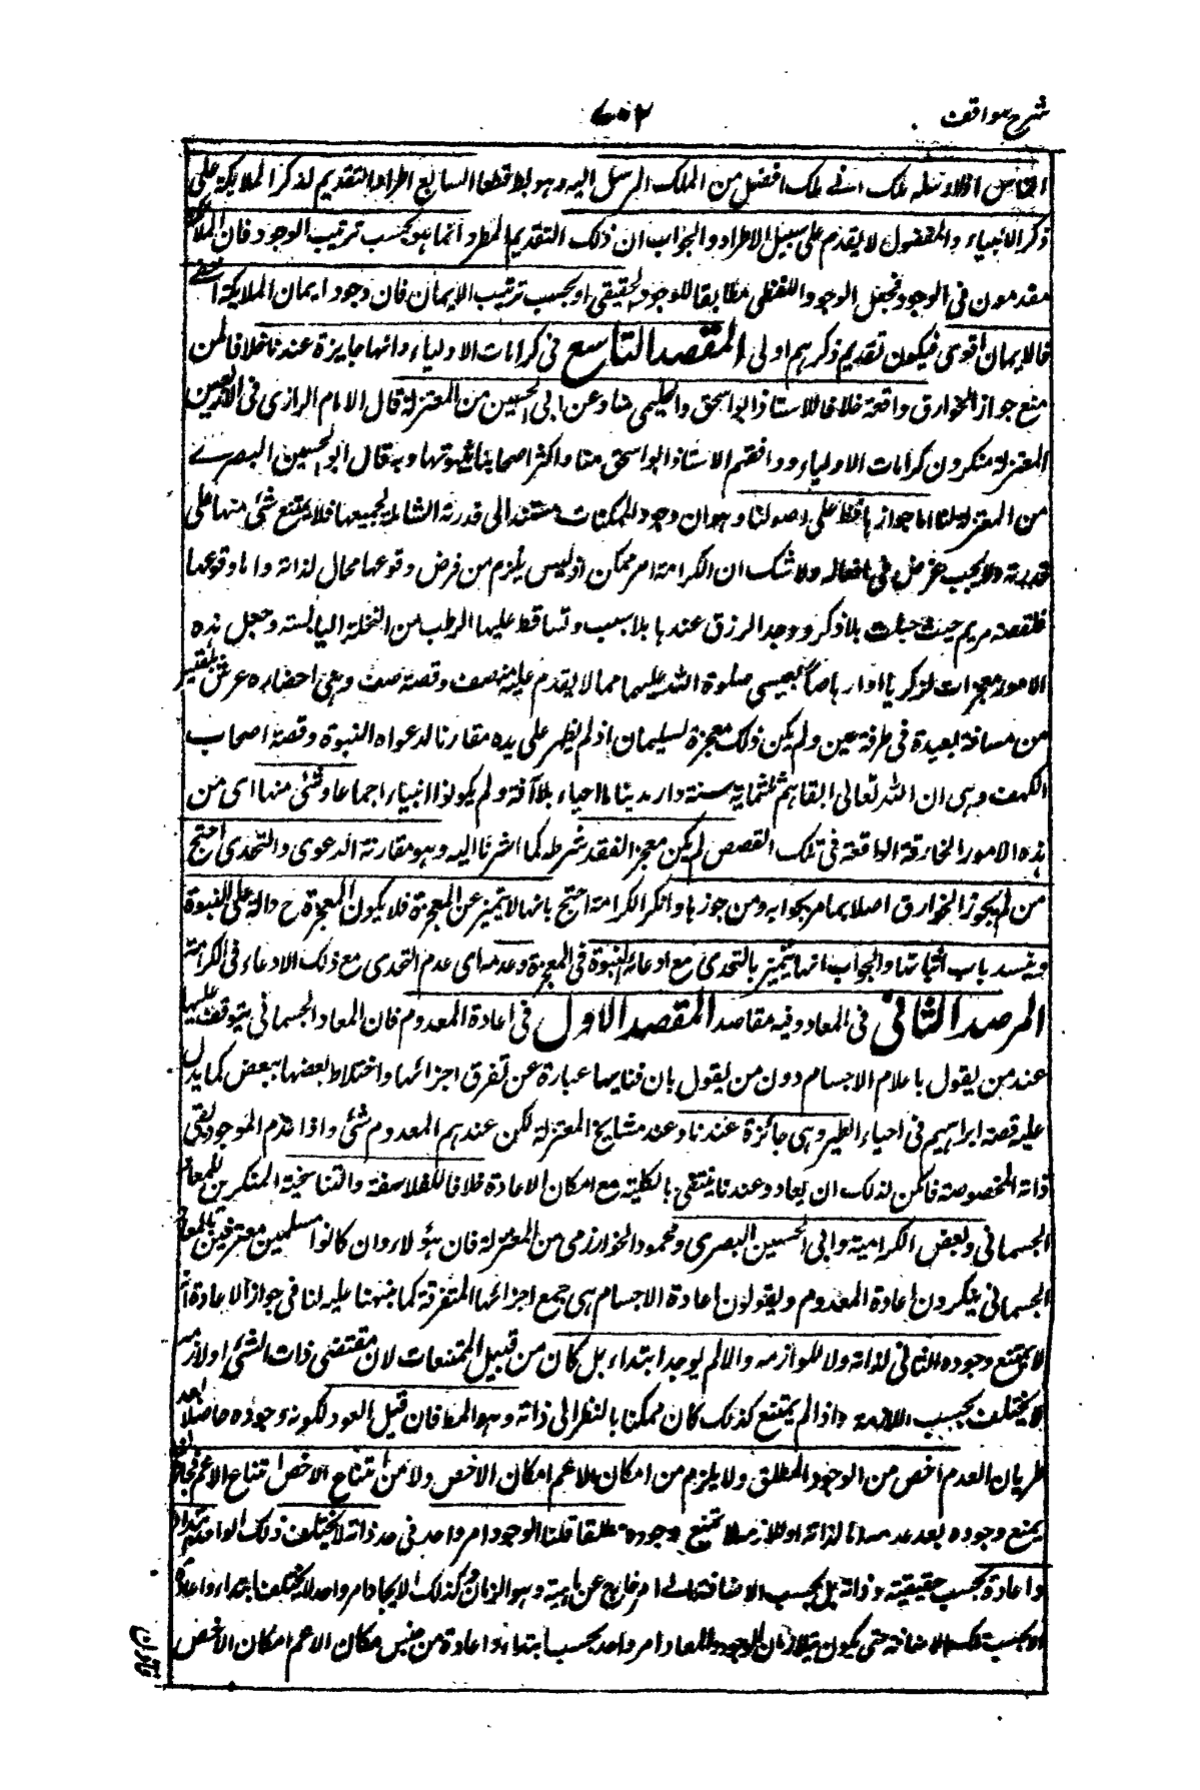 شرح مواقف
٧٠٢
ملك افضل من الملك المرسل اليه وهو بط قطعا السابع اطراد التقديم لذكر الملايكة على
ذكر الانبياء والمفضول لا يقدم على سبيل الاطراد والجواب ان ذلك التقديم المطرد انما هو بحسب ترتيب الوجود فان الملائكة
مقدمون فى الوجود فجعل الوجود اللفظى مطابقا للوجود الحقيقى او بحسب ترتيب الايمان فان وجود ايمان الملايكة اخفى
فالايمان اقوى فيكون تقديم ذكرهم اولى المقصد التاسع فى كرامات الاولياء وانها جايزة عندنا خلافا لمن
منع جواز الخوارق واقعة خلافا للاستاذ ابو اسحق والحليمى منا وعن ابى الحسين من المعتزلة قال الامام الرازى فى الاربعين
المعتزلة منكرون كرامات الاولياء ووافقهم الاستاذ ابو اسحق منا واكثر اصحابنا يثبتونها وبه قال ابو الحسين البصرے
من المعتزلة لنا اما جوازها فظ على اصولنا وهو ان وجود الممكنات مستند الى قدرته الشاملة لجميعها فلا يمتنع شئ منها على
قدرته ولا يجب غرض فى افعاله ولا شك ان الكرامة امر ممكن اذ ليس يلزم من فرض وقوعها محال لذاته واما وقوعها
فلقصة مريم حيث حبلت بلا ذكر ووجد الرزق عندها بلا سبب وتساقط عليها الرطب من النخلة اليابسة وجعل هذه
الامور معجزات لزكريا او ارهاصا لعيسى صلوة الله عليهما مما لا يقدم عليه منصف وقصة اصف وهى احضاره عرش بلقيس
من مسافة بعيدة فى طرفة عين ولم يكن ذلك معجزة لسليمان اذ لم يظهر على يده مقارنا لدعواه النبوة وقصة اصحاب
الكهف وهى ان الله تعالى ابقاهم ثلثماية سنة وازيد نياما احياء بلا آفة ولم يكونوا انبياء اجماعا وشئ منها اى من
هذه الامور الخارقة الواقعة فى تلك القصص لم يكن معجزا لفقد شرطه كما اشرنا اليه وهو مقارنة الدعوى والتحدى احتج
من لم يجوز الخوارق اصلا بما مر بجوابه ومن جوزها وانكر الكرامة احتج بانها لا تتميز عن المعجزة فلا يكون المعجزة ح دالة على النبوة
وينسد باب اثباتها والجواب انها تتميز بالتحدى مع ادعاء النبوة فى المعجزة وعدمه اى عدم التحدى مع ذلك الادعاء فى الكرامة
المرصد الثانى فى المعاد وفيه مقاصد المقصد الاول فى اعادة المعدوم فان المعاد الجسمانى يتوقف عليها
عند من يقول باعدام الاجسام دون من يقول بان فنايها عبارة عن تفرق اجزائها واختلاط بعضها ببعض كما يدل
عليه قصة ابراهيم فى احياء الطير وهى جائزة عندنا وعند مشايخ المعتزلة لكن عندهم المعدوم شئ واذا عدم الموجود بقى
ذاته المخصوصة فامكن لذلك ان يعاد وعندنا ينتفى بالكلية مع امكان الاعادة خلافا للفلاسفة والتناسخية المنكرين للمعاد
الجسمانى وبعض الكرامية وابى الحسين البصرى ومحمود الخوارزمى من المعتزلة فان هؤلاء وان كانوا مسلمين معترفين بالمعاد
الجسمانى ينكرون اعادة المعدوم ويقولون اعادة الاجسام هى جمع اجزائها المتفرقة كما نبهنا عليه لنا فى جواز الاعادة انه
لا يمتنع وجوده الثانى لذاته ولا للوازمه والا لم يوجد ابتداء بل كان من قبيل الممتنعات لان مقتضى ذات الشئ او لازمه
لا يختلف بحسب الازمنة واذا لم يمتنع كذلك كان ممكنا بالنظر الى ذاته وهو المط فان قيل العود لكونه وجودا حاصلا بعد
طريان العدم اخص من الوجود المطلق ولا يلزم من امكان الاعم امكان الاخص ولا من امتناع الاخص امتناع الاعم فجاز ان
يمتنع وجوده بعد عدمه اما لذاته او للازمه ولا يمتنع وجوده مطلقا قلنا الوجود امر واحد فى حد ذاته لا يختلف ذلك الواحد ابتداء
واعادة بحسب حقيقته وذاته بل بحسب الاضافة الى امر خارج عن ماهيته وهو الزمان وكذلك الايجاد امر واحد لا يختلف ابتداء واعادة
الا بحسب تلك الاضافة